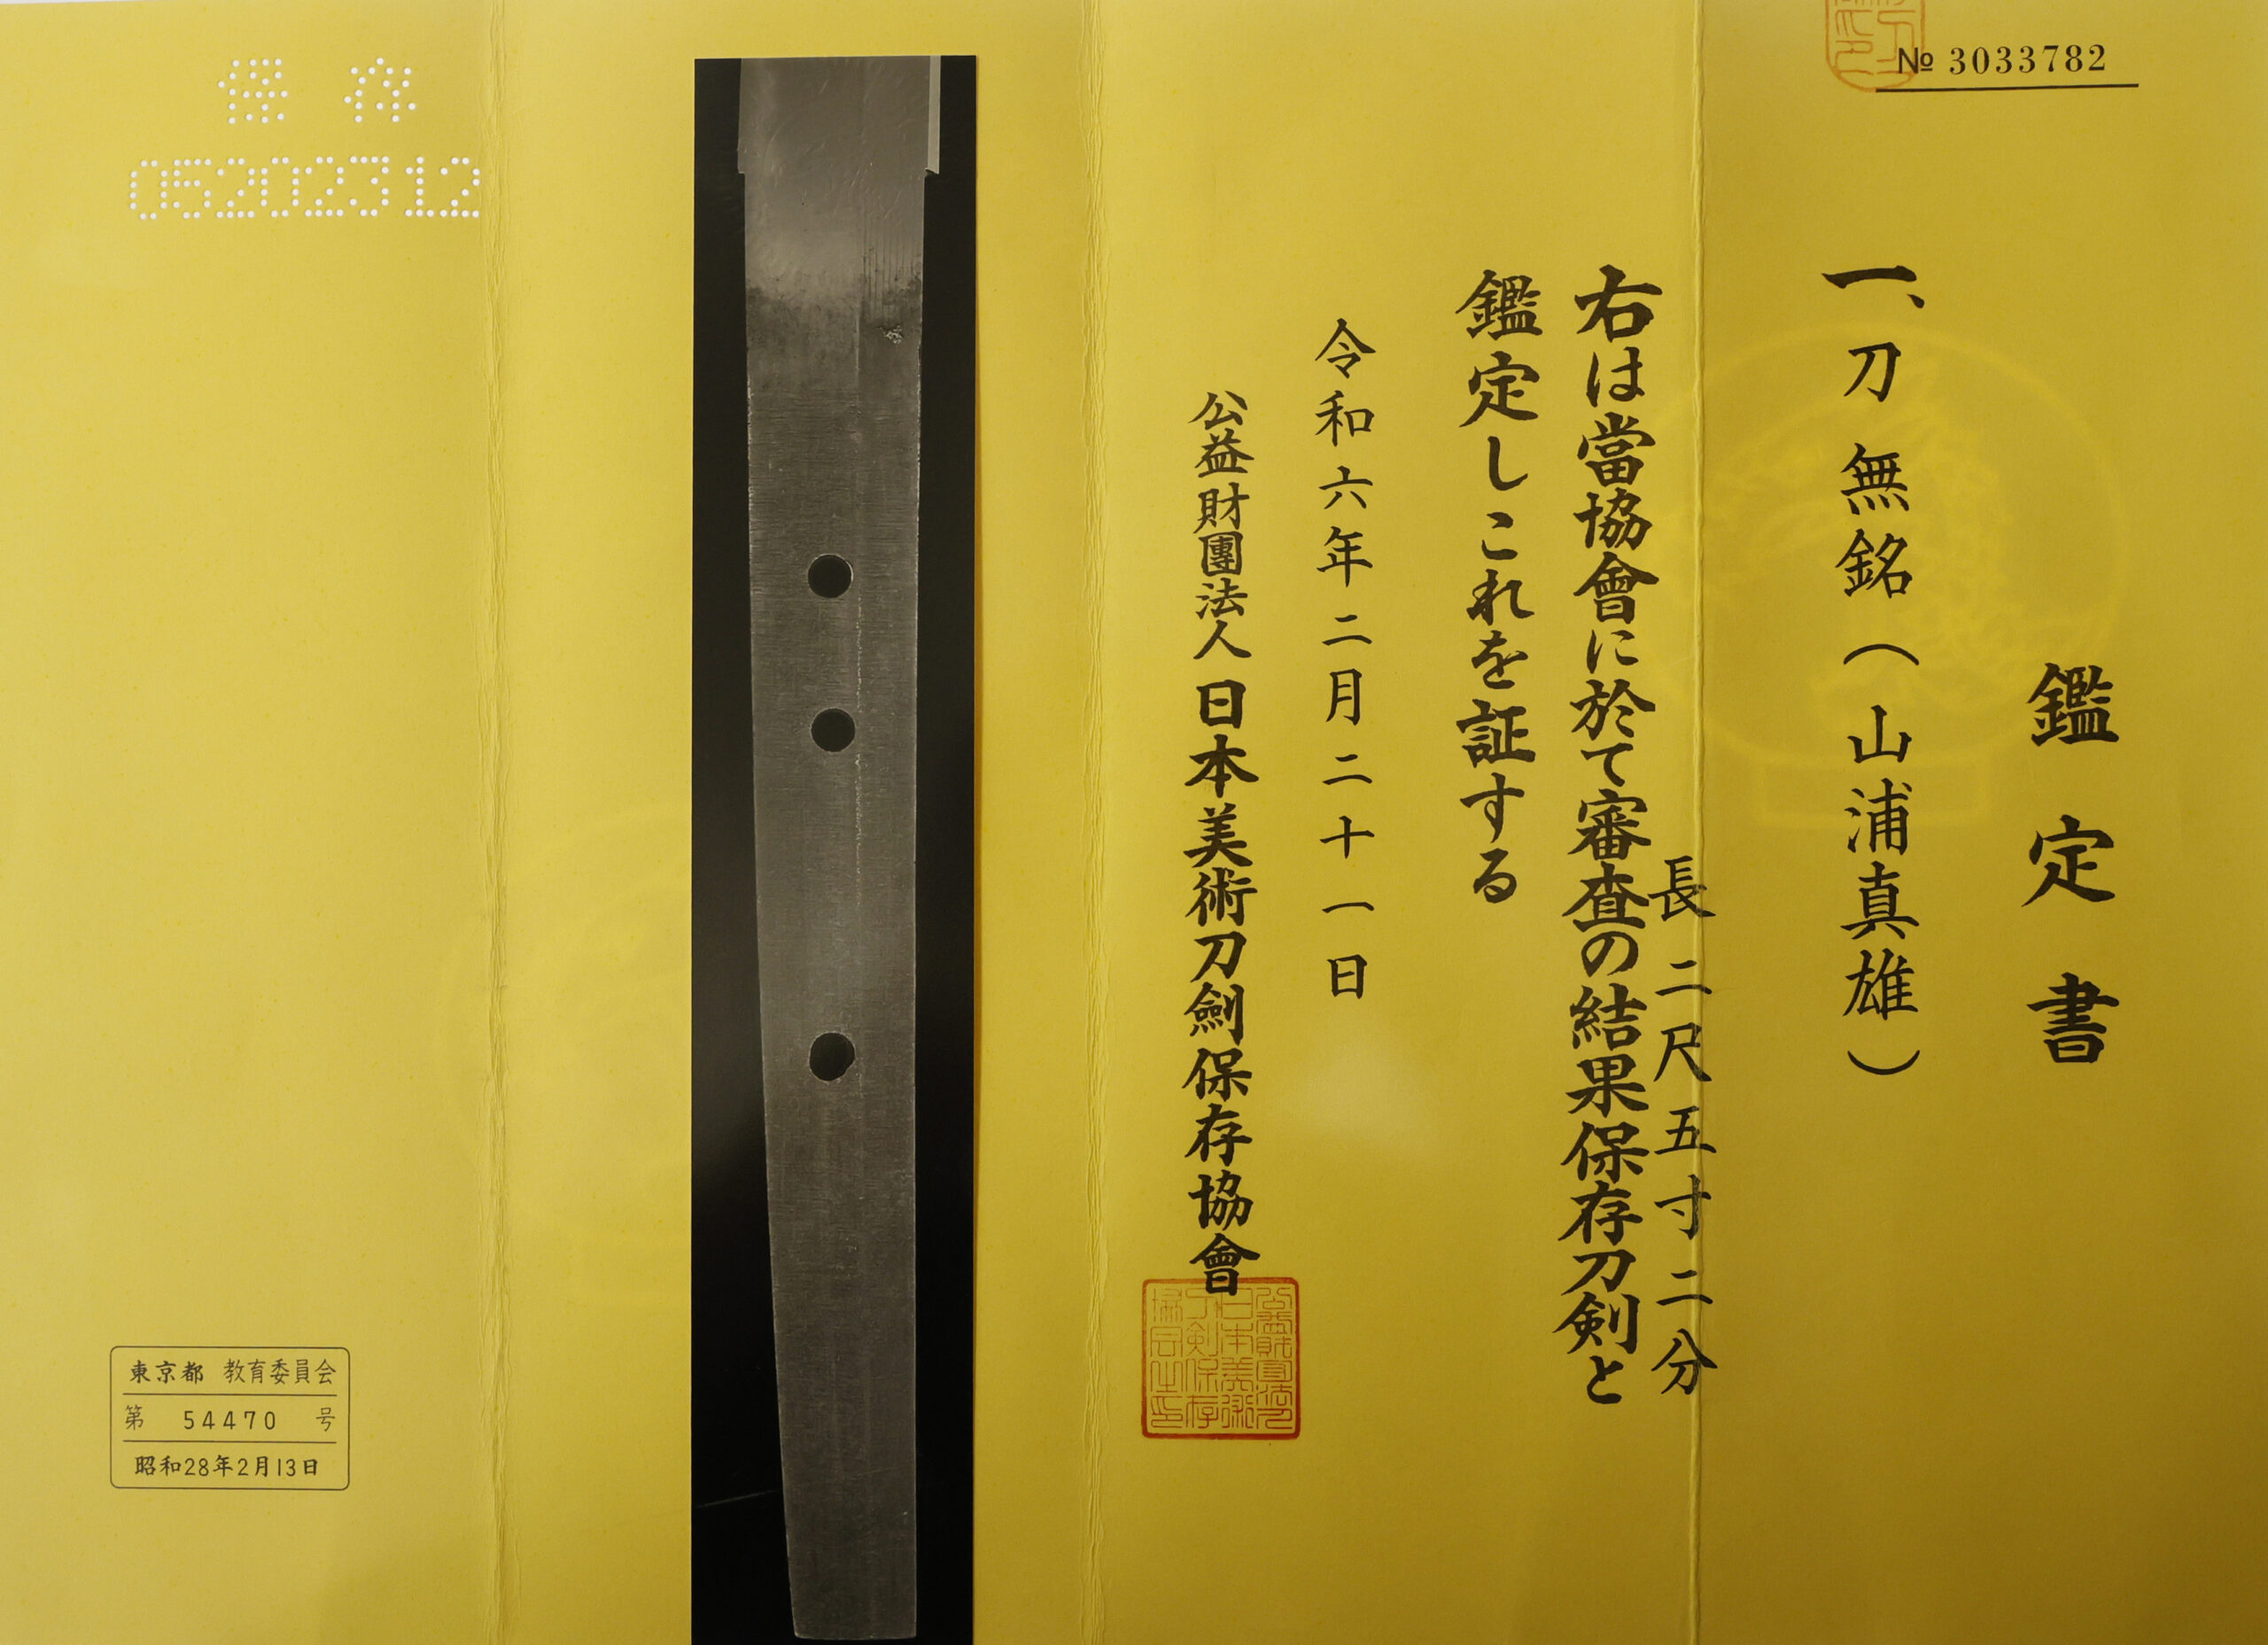 № 3033782
鑑定書
一、刀 無銘（山浦真雄）
長 二尺五寸二分
右は當協會に於て審査の結果保存刀剣と
鑑定しこれを証する
令和六年二月二十一日
公益財團法人 日本美術刀劍保存協會
保存
05202312
東京都 教育委員会
第 54470 号
昭和28年2月13日